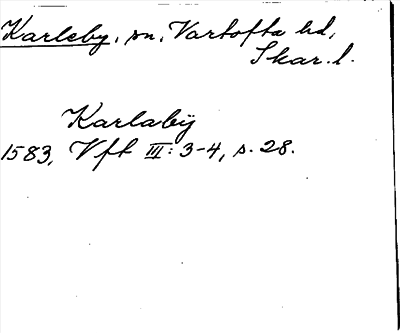 Karleby, sn, Vartofta hd,
Skar. l.
Karlabÿ
1583, Vft III: 3-4, s. 28.